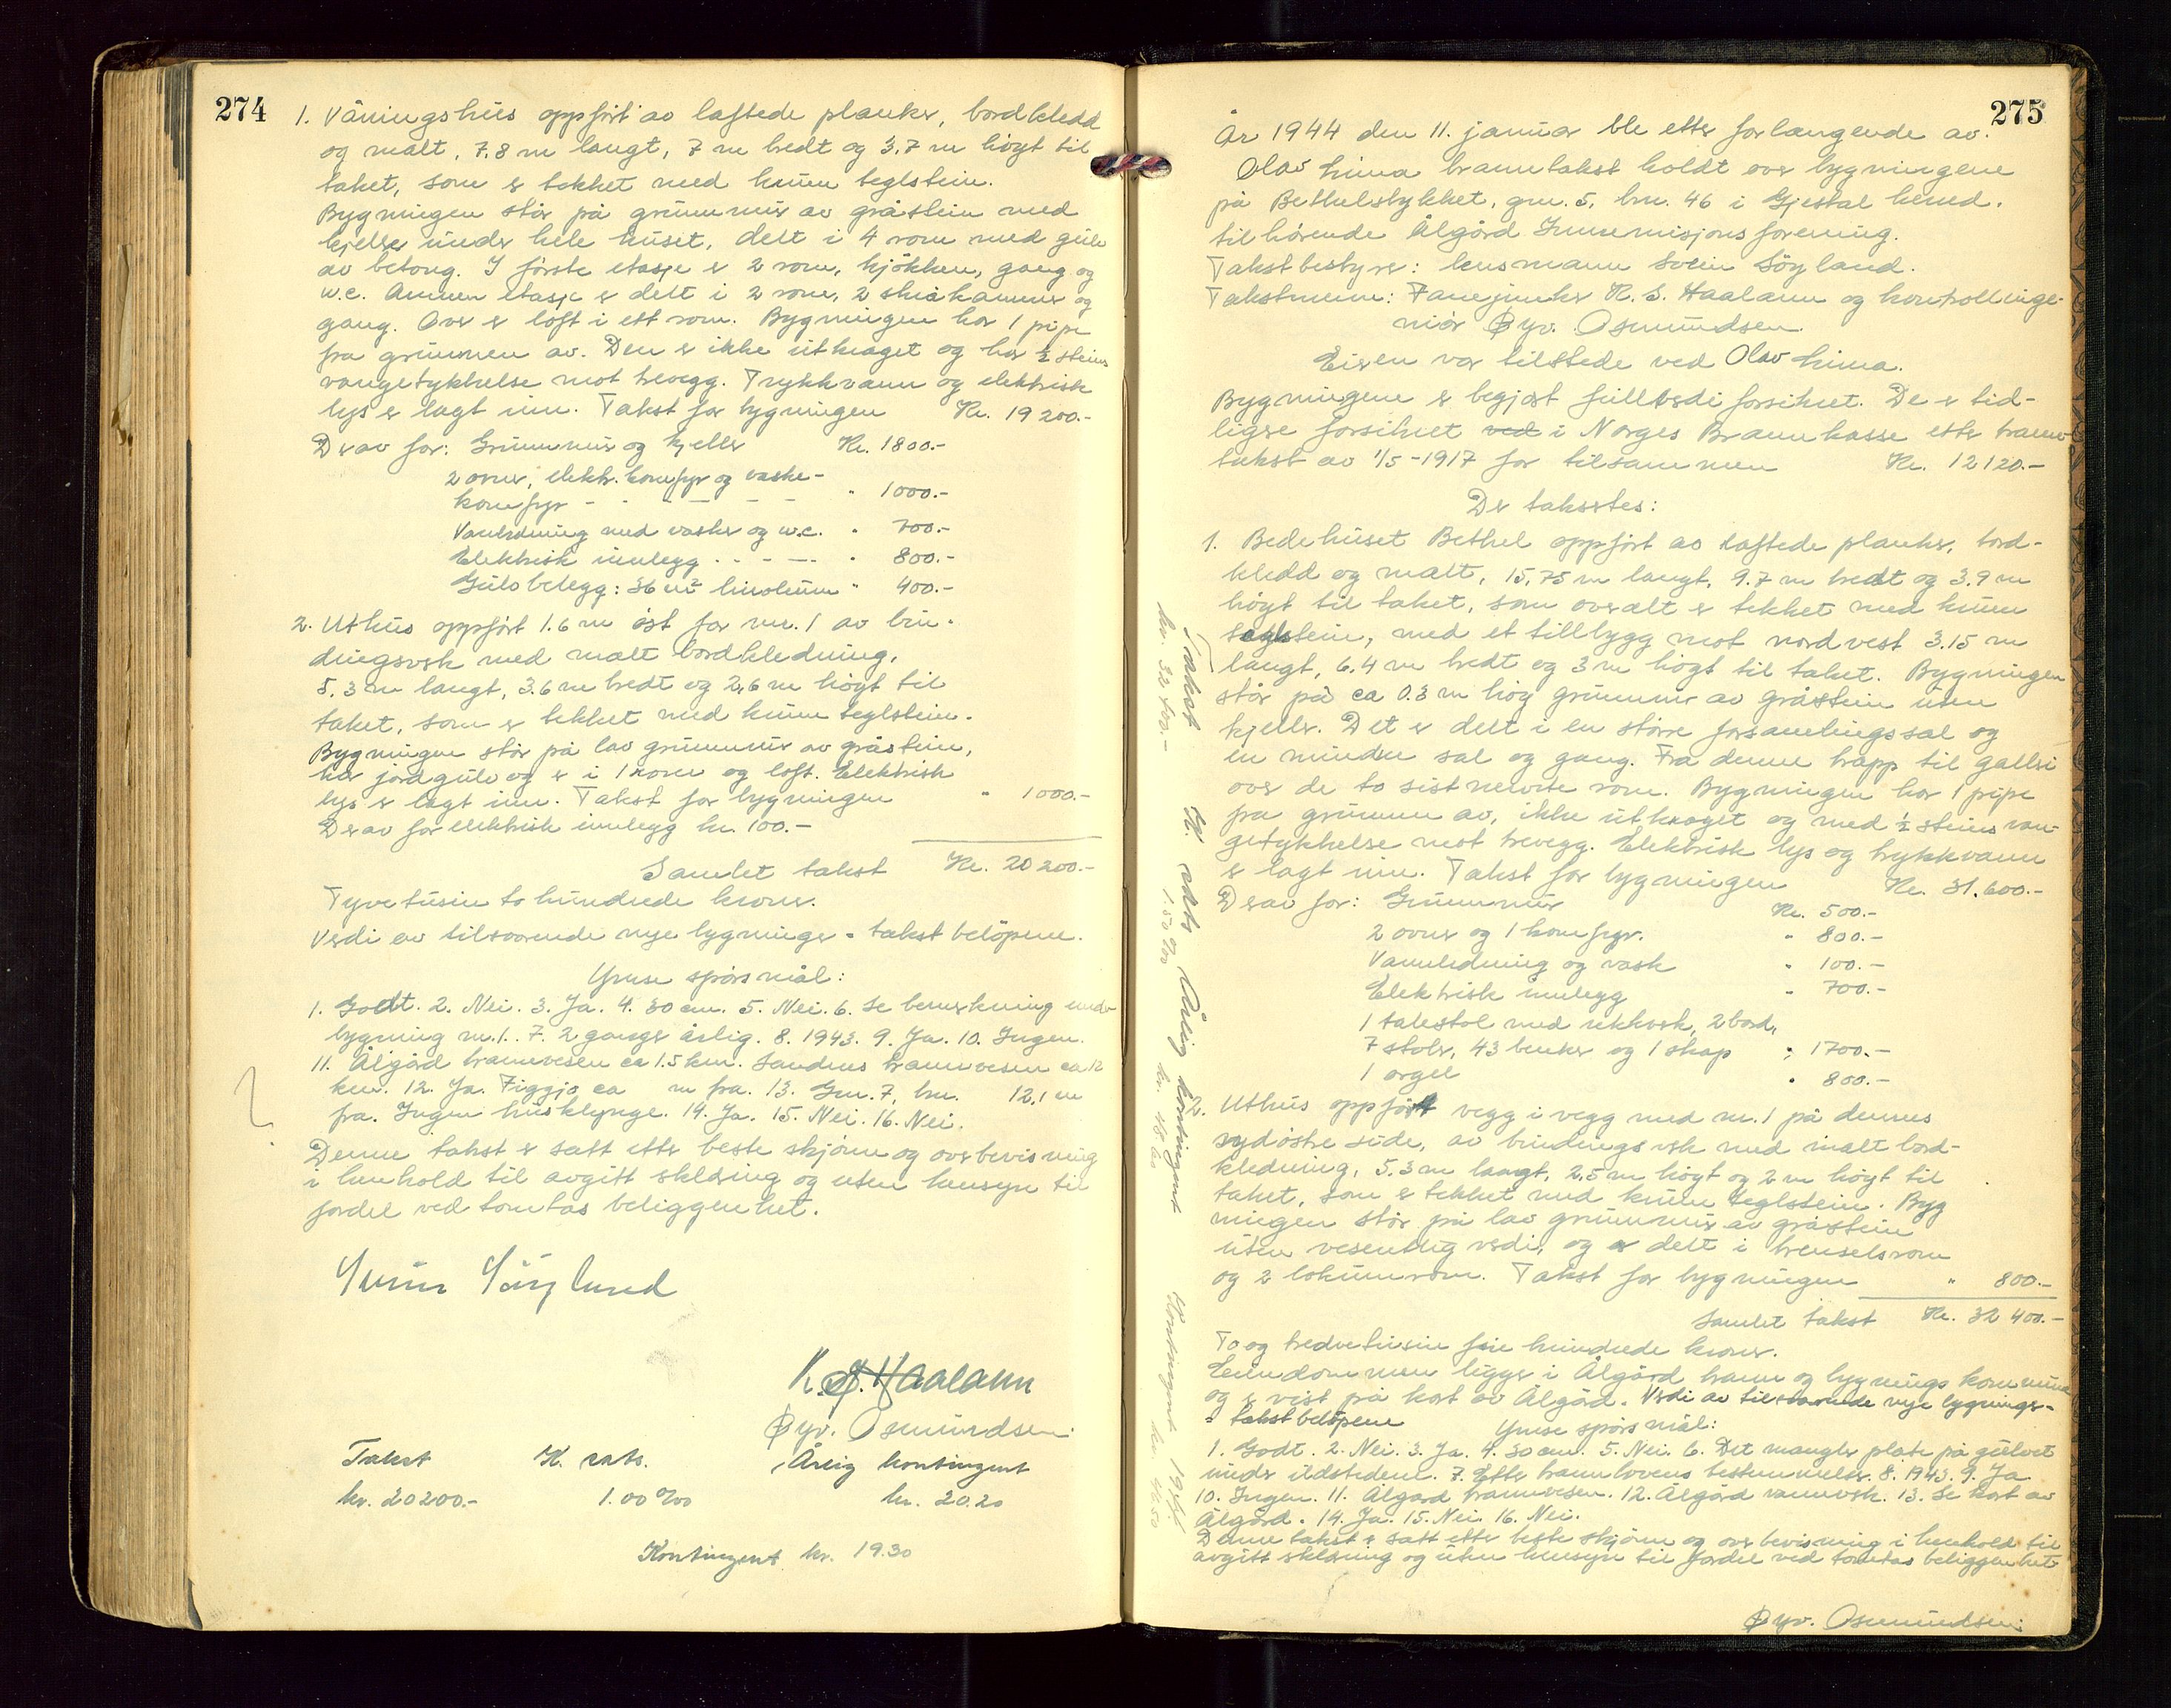 274
1. Våningshus oppført av laftede planker, bordkledd
og malt, 7.8 m langt, 7 m bredt og 3.7 m høyt til
taket, som er tekket med krum teglstein.
Bygningen står på grunnmur av gråstein med
kjeller under hele huset, delt i 4 rom med gulv
av betong. I første etasje er 2 rom, kjøkken, gang og
w.c. Annen etasje er delt i 2 rom, 2 skråkammer og
gang. Over er loft i ett rom. Bygningen har 1 pipe
fra grunnen av. Den er ikke utkraget og har ½ steins
vangetykkelse mot trevegg. Trykkvann og elektrisk
lys er lagt inn. Takst for bygningen Kr. 19 200.-
Derav for: Grunnmur og kjeller Kr. 1800.-
2 ovner, elektr. komfyr og vaske-
komfyr - - - - - - " 1000.-
Vannledning med vasker og w.c. " 700.-
Elektrisk innlegg - - - - - " 800.-
Gulvbelegg: 36 m² linoleum " 400.-
2. Uthus oppført 1.6 m øst for nr. 1 av bin-
dingsverk med malt bordkledning,
5.3 m langt, 3.6 m bredt og 2,6 m høyt til
taket, som er tekket med krum teglstein.
Bygningen står på lav grunnmur av gråstein,
har jordgulv og er i 1 rom og loft. Elektrisk
lys er lagt inn. Takst for bygningen " 1000.-
Derav for elektrisk innlegg kr. 100.-
Samlet takst Kr. 20 200.-
Tyvetusin to hundrede kroner.
Verdi av tilsvarende nye bygninger = takstbeløpene.
Ymse spørsmål:
1. Godt. 2. Nei. 3. Ja. 4. 30 cm. 5. Nei. 6. Se bemerkning under
bygning nr. 1. 7. 2 ganger årlig. 8. 1943. 9. Ja. 10. Ingen.
11. Ålgård brannvesen ca 1.5 km. Sandnes brannvesen ca 12
km. 12. Ja. Figgjo ca m fra. 13. Gnr. 7, bnr. 12,1 m
fra. Ingen husklynge. 14. Ja. 15. Nei. 16. Nei.
Denne takst er satt etter beste skjønn og overbevisning
i henhold til avgitt skldring og uten hensyn til
fordel ved tomtas beliggenhet.
Svein Söyland
K. S. Haalann
Øyv. Osmundsen.
Takst K. sats. Årlig kontingent
kr. 20200.- 1.00 ‰ kr. 20.20
Kontingent kr. 19.30
275
År 1944 den 11. januar ble etter forlangende av
Olav Lima branntakst holdt over bygningene
på Bethelstykket, gnr. 5, bnr. 46 i Gjestal herred,
tilhørende Ålgård Innremisjonsforening.
Takstbestyrer: lensmann Svein Söyland.
Takstmenn: Fanejunker K. S. Haalann og kontrollinge-
niør Øyv. Osmundsen.
Eieren var tilstede ved Olav Lima.
Bygningene er begjært fullverdiforsikret. De er tid-
ligere forsikret ved i Norges Brannkasse etter brann-
takst av 1/5-1917 for tilsammen Kr. 12120.-
Der taksertes:
1. Bedehuset Bethel oppført av laftede planker, bord-
kledd og malt, 15,75 m langt, 9.7 m bredt og 3.9 m
høyt til taket, som overalt er tekket med krum
teglstein, med et tillbygg mot nordvest 3.15 m
langt, 6.4 m bredt og 3 m høgt til taket. Bygningen
står på ca 0.3 m høg grunnmur av gråstein uten
kjeller. Det er delt i en større forsamlingssal og
en mindre sal og gang. Fra denne trapp til galleri
over de to sistnevnte rom. Bygningen har 1 pipe
fra grunnen av, ikke utkraget og med ½ steins van-
getykkelse mot trevegg. Elektrisk lys og trykkvann
er lagt inn. Takst for bygningen Kr. 31.600.-
Derav for: Grunnmur Kr. 500.-
2 ovner og 1 komfyr. " 800.-
Vannledning og vask " 100.-
Elektrisk innlegg " 700.-
1 talestol med rekkverk, 2 bord,
7 stoler, 43 benker og 1 skap " 1700.-
1 orgel " 800.-
2. Uthus oppført vegg i vegg med nr. 1 på dennes
sydøstre side, av bindingsverk med malt bord-
kledning, 5.3 m langt, 2,5 m høgt og 2 m høgt til
taket, som er tekket med krum teglstein. Byg
ningen står på lav grunnmur av gråstein
uten vesentlig verdi, og er delt i brenselsrom
og 2 lokumrom. Takst for bygningen " 800.-
Samlet takst Kr. 32 400.-
To og tredvetusin fire hundrede kroner.
Eiendommen ligger i Ålgård brann og bygningskommune
og er vist på kart av Ålgård. Verdi av tilsvarende nye bygninger =
= takstbeløpene Ymse spørsmål:
1. Godt. 2. Nei. 3. Ja. 4. 30 cm. 5. Nei. 6. Det mangler plate på gulvet
under ildstedene. 7. Etter brannlovens bestemmelser. 8. 1943. 9. Ja
10. Ingen. 11. Ålgård brannvesen. 12. Ålgård vannverk. 13. Se kart av
Ålgård. 14. Ja. 15. Nei. 16. Nei.
Denne takst er satt etter beste skjønn og overbevisning i henhold til
avgitt skldring og uten hensyn til fordel ved tomtas beliggenhet
Øyv. Osmundsen.
Takst K. sats Årlig kontingent
kr. 32 400.- 1.50 ‰ kr. 48.60
Kontingent 19